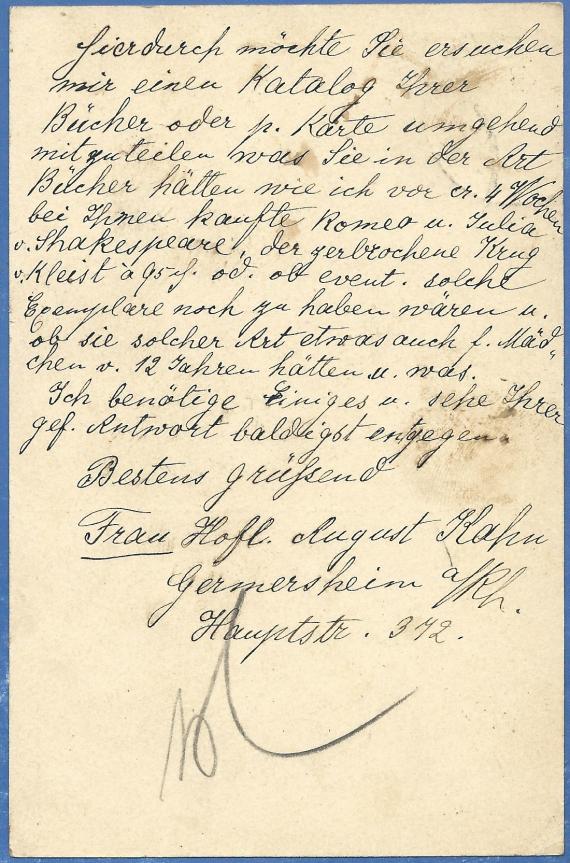 Hierdurch möchte Sie ersuchen
mir einen Katalog Ihrer
Bücher oder p. Karte umgehend
mitzuteilen was Sie in der Art
Bücher hätten wie ich vor cr. 4 Wochen
bei Ihnen kaufte Romeo u. Julia
v. Shakespeare, der zerbrochene Krug
v. Kleist à 95 od. ob event. solche
Exemplare noch zu haben wären u.
ob sie solcher Art etwas auch f. Mäd„
chen v. 12 Jahren hätten u. was.
Ich benötige Einiges u. sehe Ihrer
gef. Antwort baldigst entgegen.
Bestens grüßend
Frau Hofl. August Kahn
Germersheim a/Rh.
Hauptstr. 372.